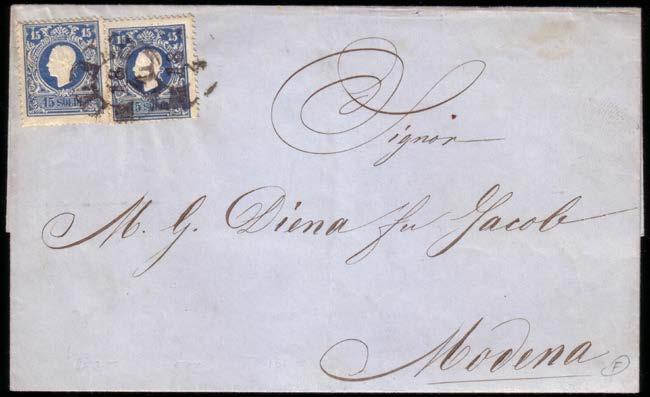 15 15
15 SOLDI
15 15
15 SOLDI
Signor
M. G. Diena fu Jacob
Modena
F